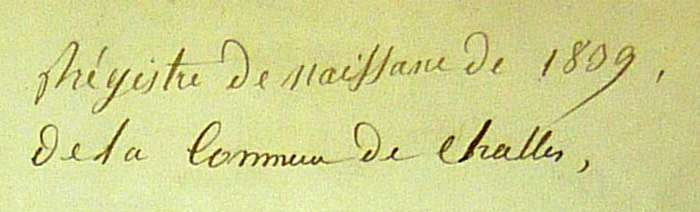 Régistre de naissance de 1809,
de la Commune de Challes,